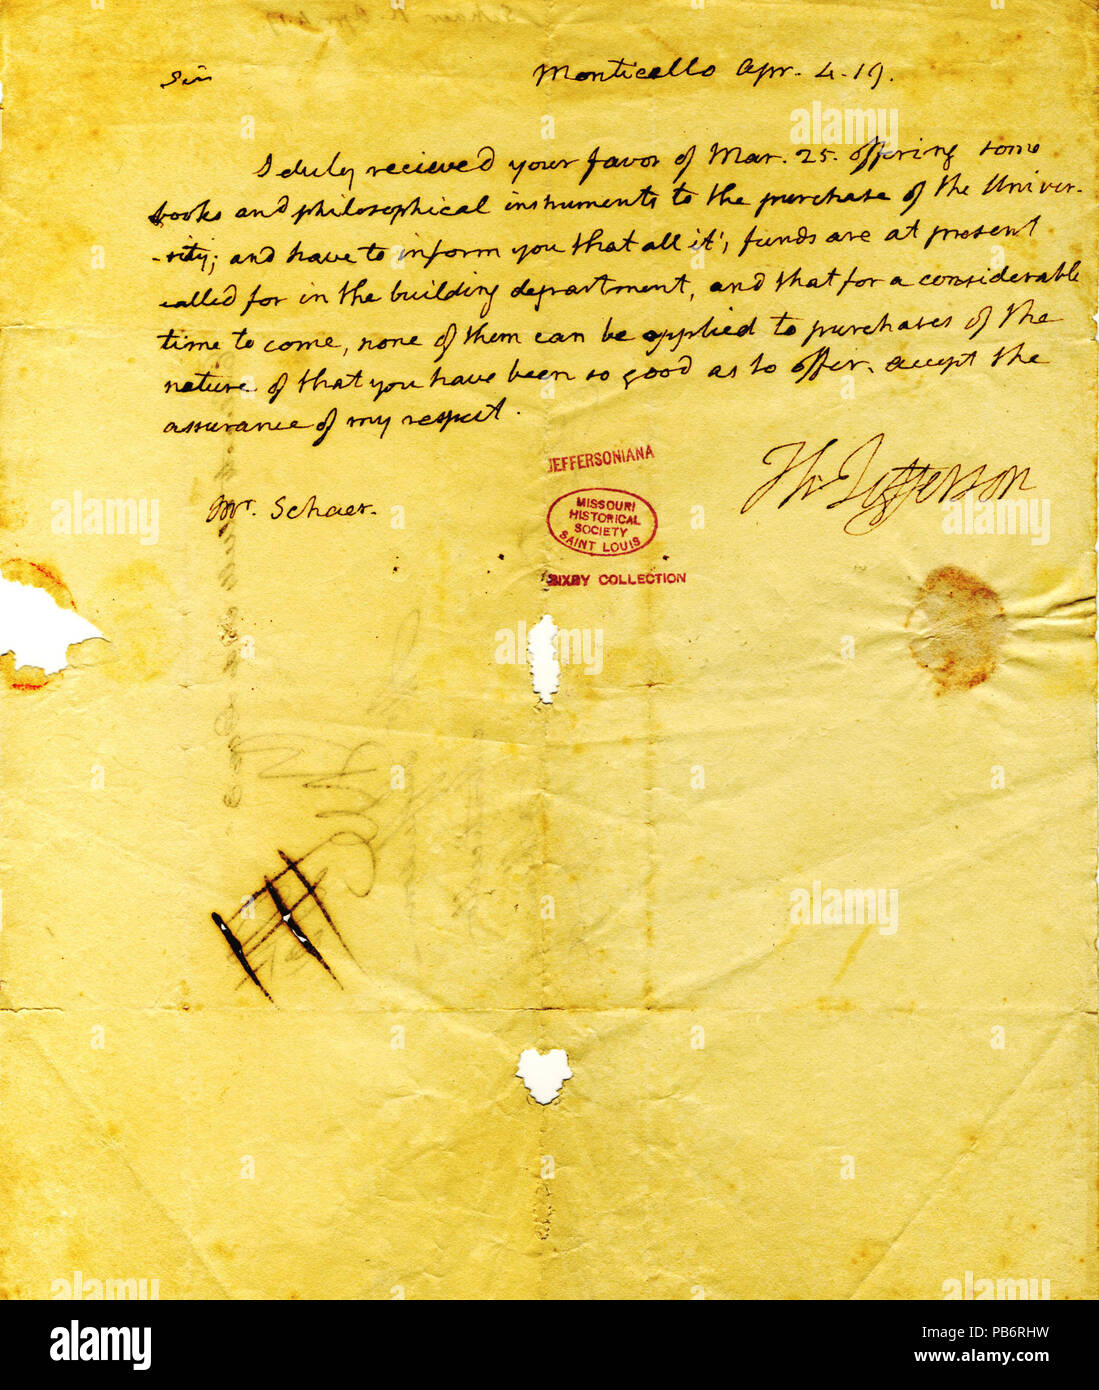 Sir
Monticello Apr. 4. 19.
I duly recieved your favor of Mar. 25. offering some
books and philosophical instruments to the purchase of the Univer-
-sity; and have to inform you that all it's, funds are at present
called for in the building department, and that for a considerable
time to come, none of them can be applied to purchases of the
nature of that you have been so good as to offer. accept the
assurance of my respect.
Th Jefferson
Mr. Schaer.
JEFFERSONIANA
MISSOURI
HISTORICAL
SOCIETY
SAINT LOUIS
BIXBY COLLECTION
alamy
alamy
alamy
alamy
alamy
alamy
alamy
Image ID: PB6RHW
www.alamy.com